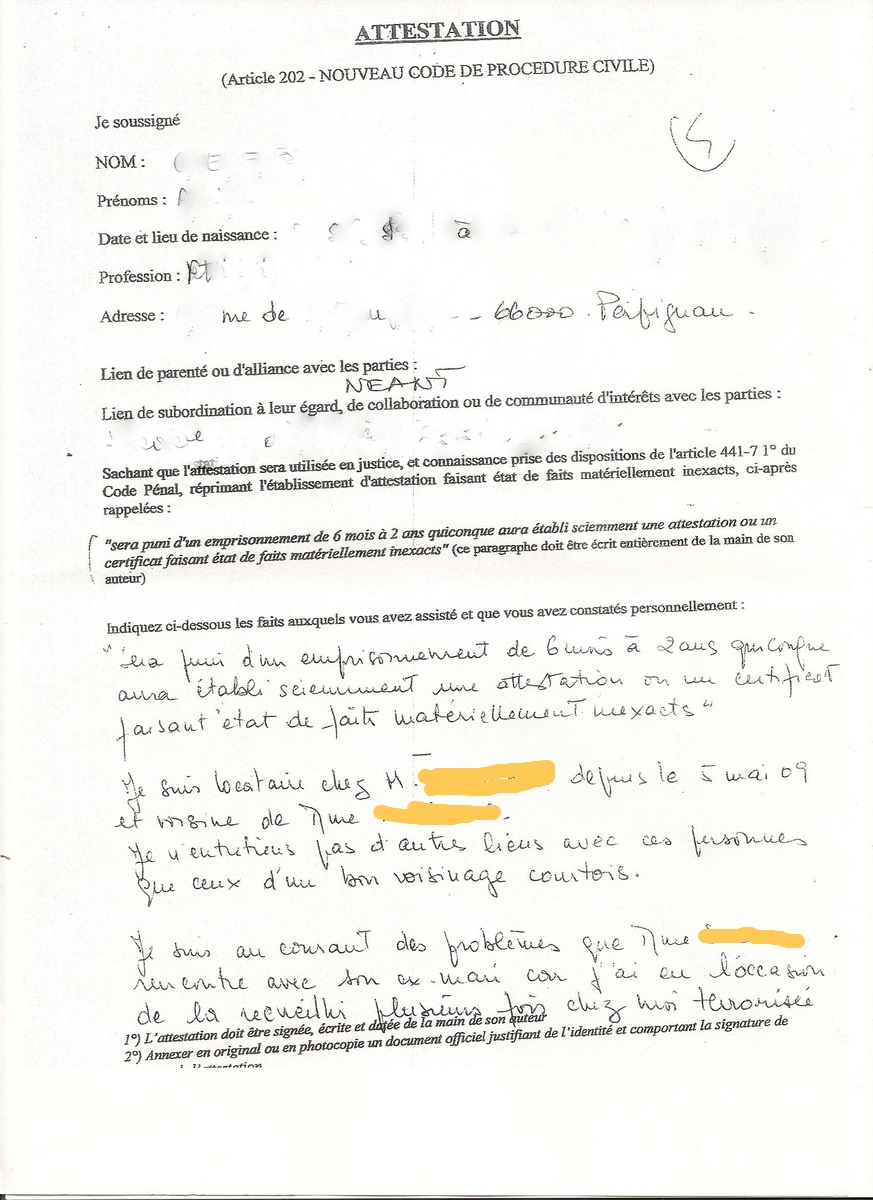 ATTESTATION
(Article 202 - NOUVEAU CODE DE PROCEDURE CIVILE)
Je soussigné
NOM :
Prénoms :
Date et lieu de naissance : à
Profession :
Adresse : de - 66000 Perpignan.
Lien de parenté ou d'alliance avec les parties :
NEANT
Lien de subordination à leur égard, de collaboration ou de communauté d'intérêts avec les parties :
Sachant que l'attestation sera utilisée en justice, et connaissance prise des dispositions de l'article 441-7 1° du
Code Pénal, réprimant l'établissement d'attestation faisant état de faits matériellement inexacts, ci-après
rappelées :
"sera puni d'un emprisonnement de 6 mois à 2 ans quiconque aura établi sciemment une attestation ou un
certificat faisant état de faits matériellement inexacts" (ce paragraphe doit être écrit entièrement de la main de son
auteur)
Indiquez ci-dessous les faits auxquels vous avez assisté et que vous avez constatés personnellement :
"sera puni d'un emprisonnement de 6 mois à 2 ans quiconque
aura établi sciemment une attestation ou un certificat
faisant état de faits matériellement inexacts"
Je suis locataire chez M. depuis le 5 mai 09
et voisine de Mme
Je n'entretiens pas d'autres liens avec ces personnes
que ceux d'un bon voisinage courtois.
Je suis au courant des problèmes que Mme
rencontre avec son ex-mari car j'ai eu l'occasion
de la recueillir plusieurs fois chez moi terrorisée
1°) L'attestation doit être signée, écrite et datée de la main de son auteur
2°) Annexer en original ou en photocopie un document officiel justifiant de l'identité et comportant la signature de